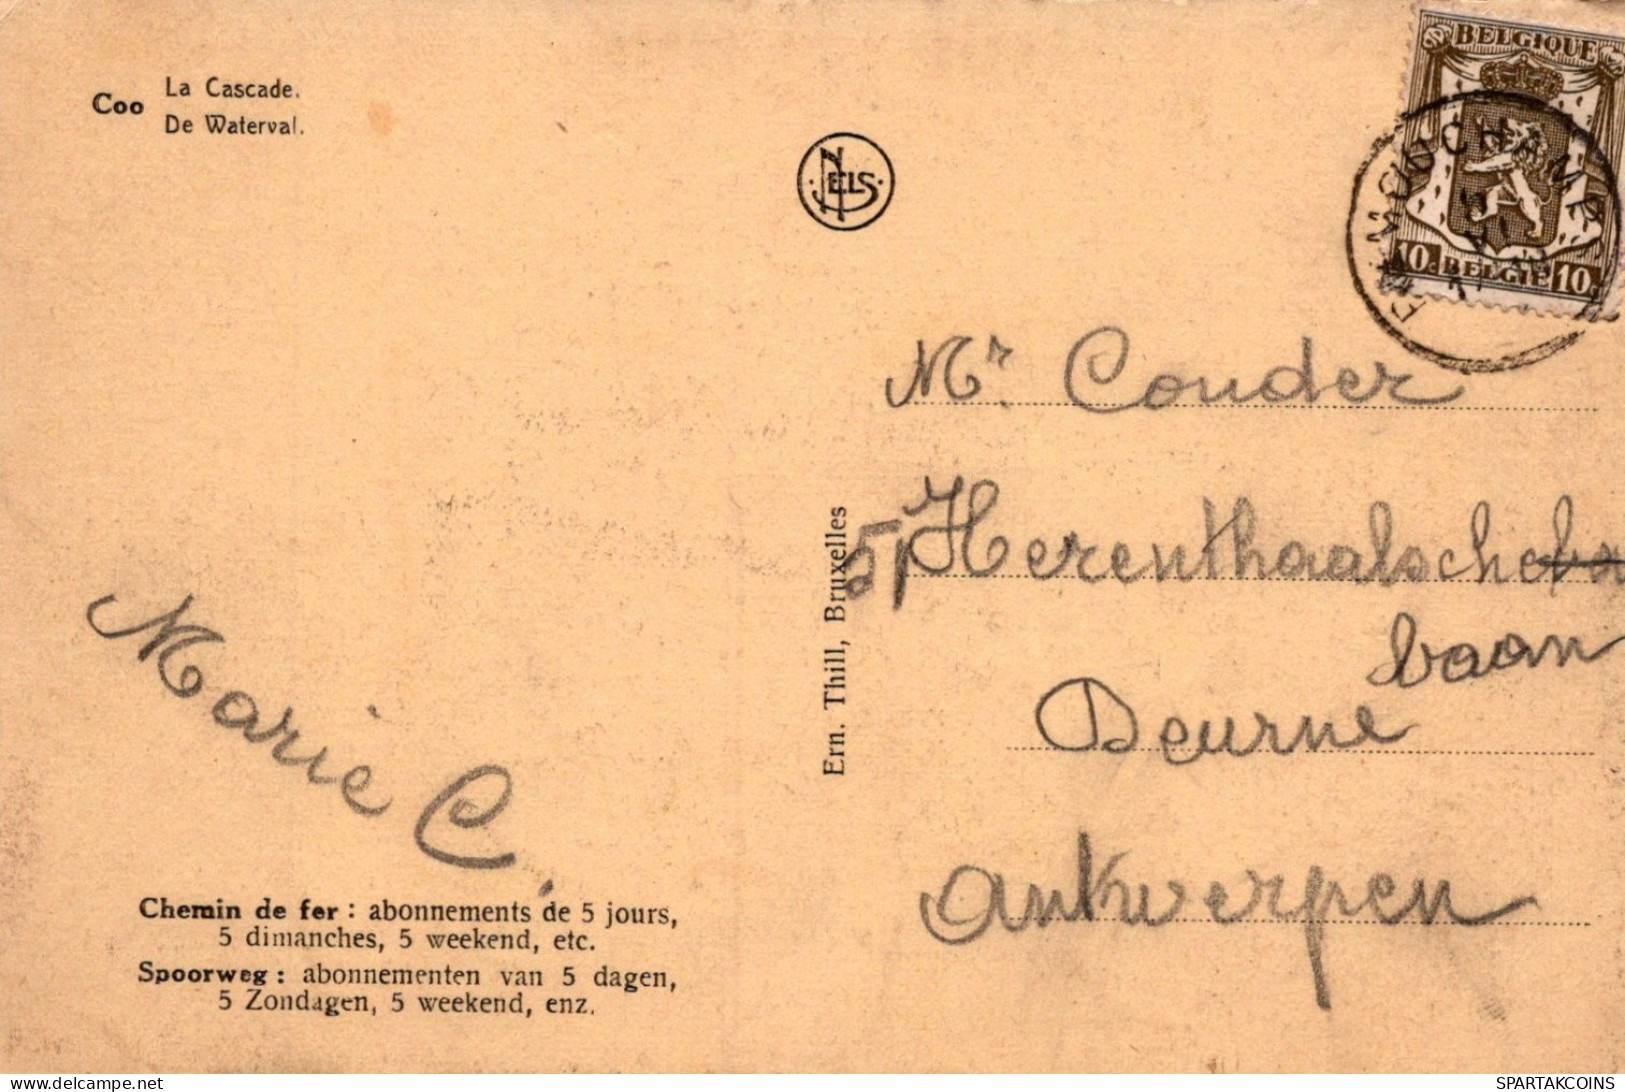 Coo
La Cascade.
De Waterval.
NELS
BELGIQUE
10c BELGIE 10c
REMOUCHAMP
Mr Couder
51 Herenthaalsche
baan
Deurne
Antwerpen
Marie C.
Ern. Thill, Bruxelles
Chemin de fer : abonnements de 5 jours,
5 dimanches, 5 weekend, etc.
Spoorweg : abonnementen van 5 dagen,
5 Zondagen, 5 weekend, enz.
https://www.delcampe.net
SPARTAKCOINS